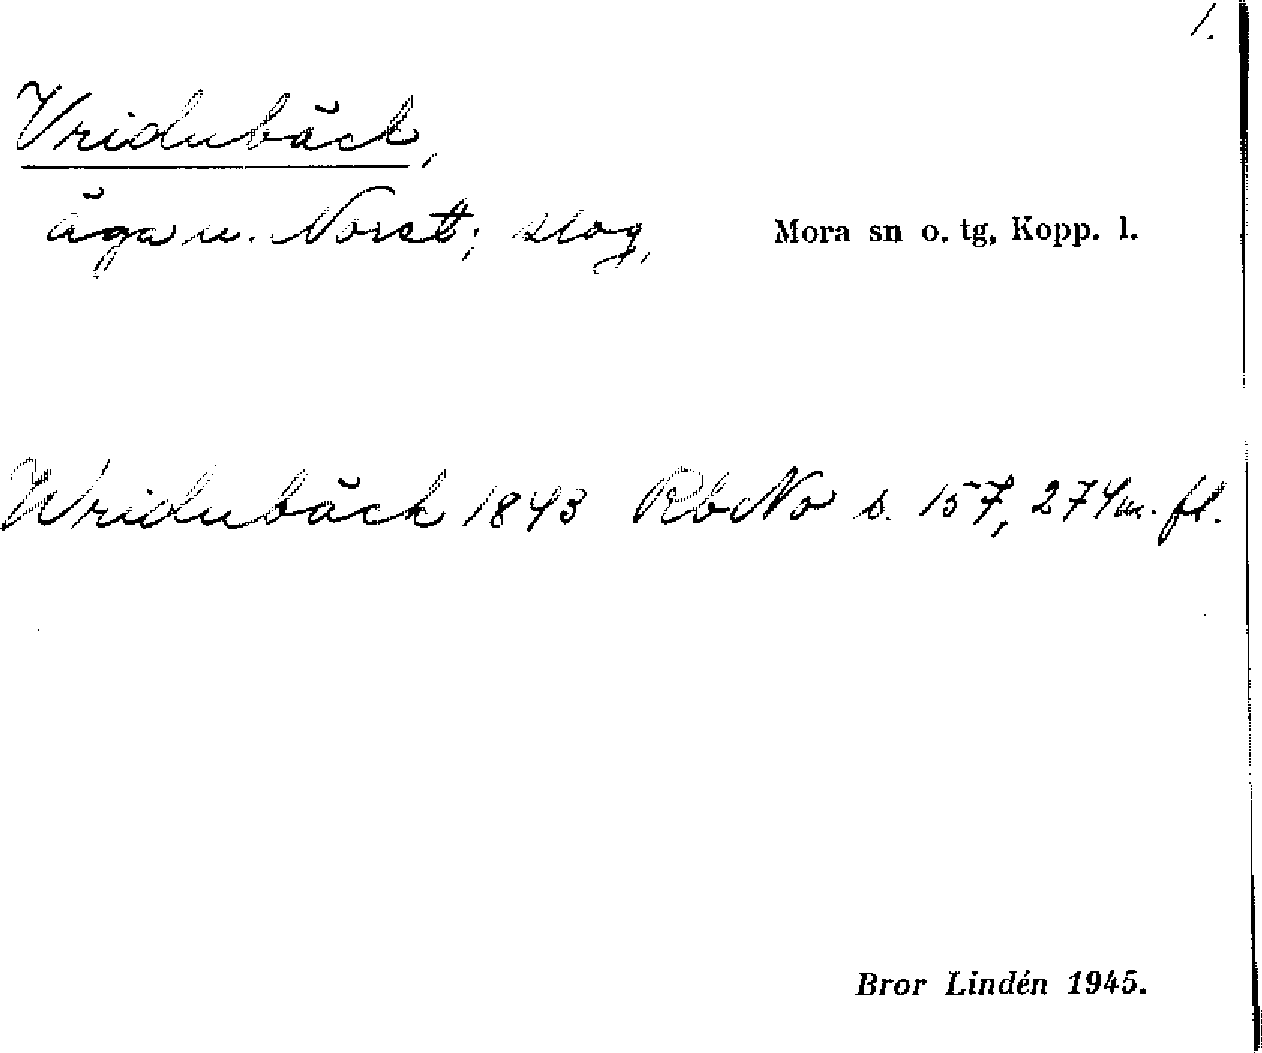 1.
Vridubäck,
äga u. Norst; slog,
Mora sn o. tg, Kopp. l.
Wridubäck 1843 RbNo s. 157, 274 m. fl.
Bror Lindén 1945.